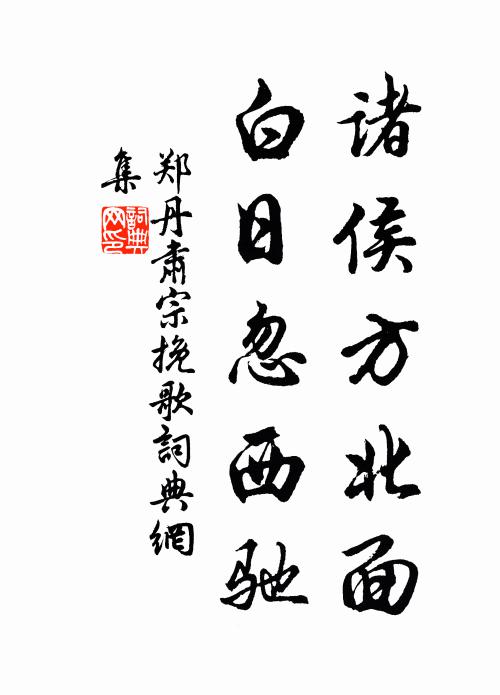 诸侯方北面
白日忽西驰
郑丹肃宗挽歌詞典網
集
詞典
网印